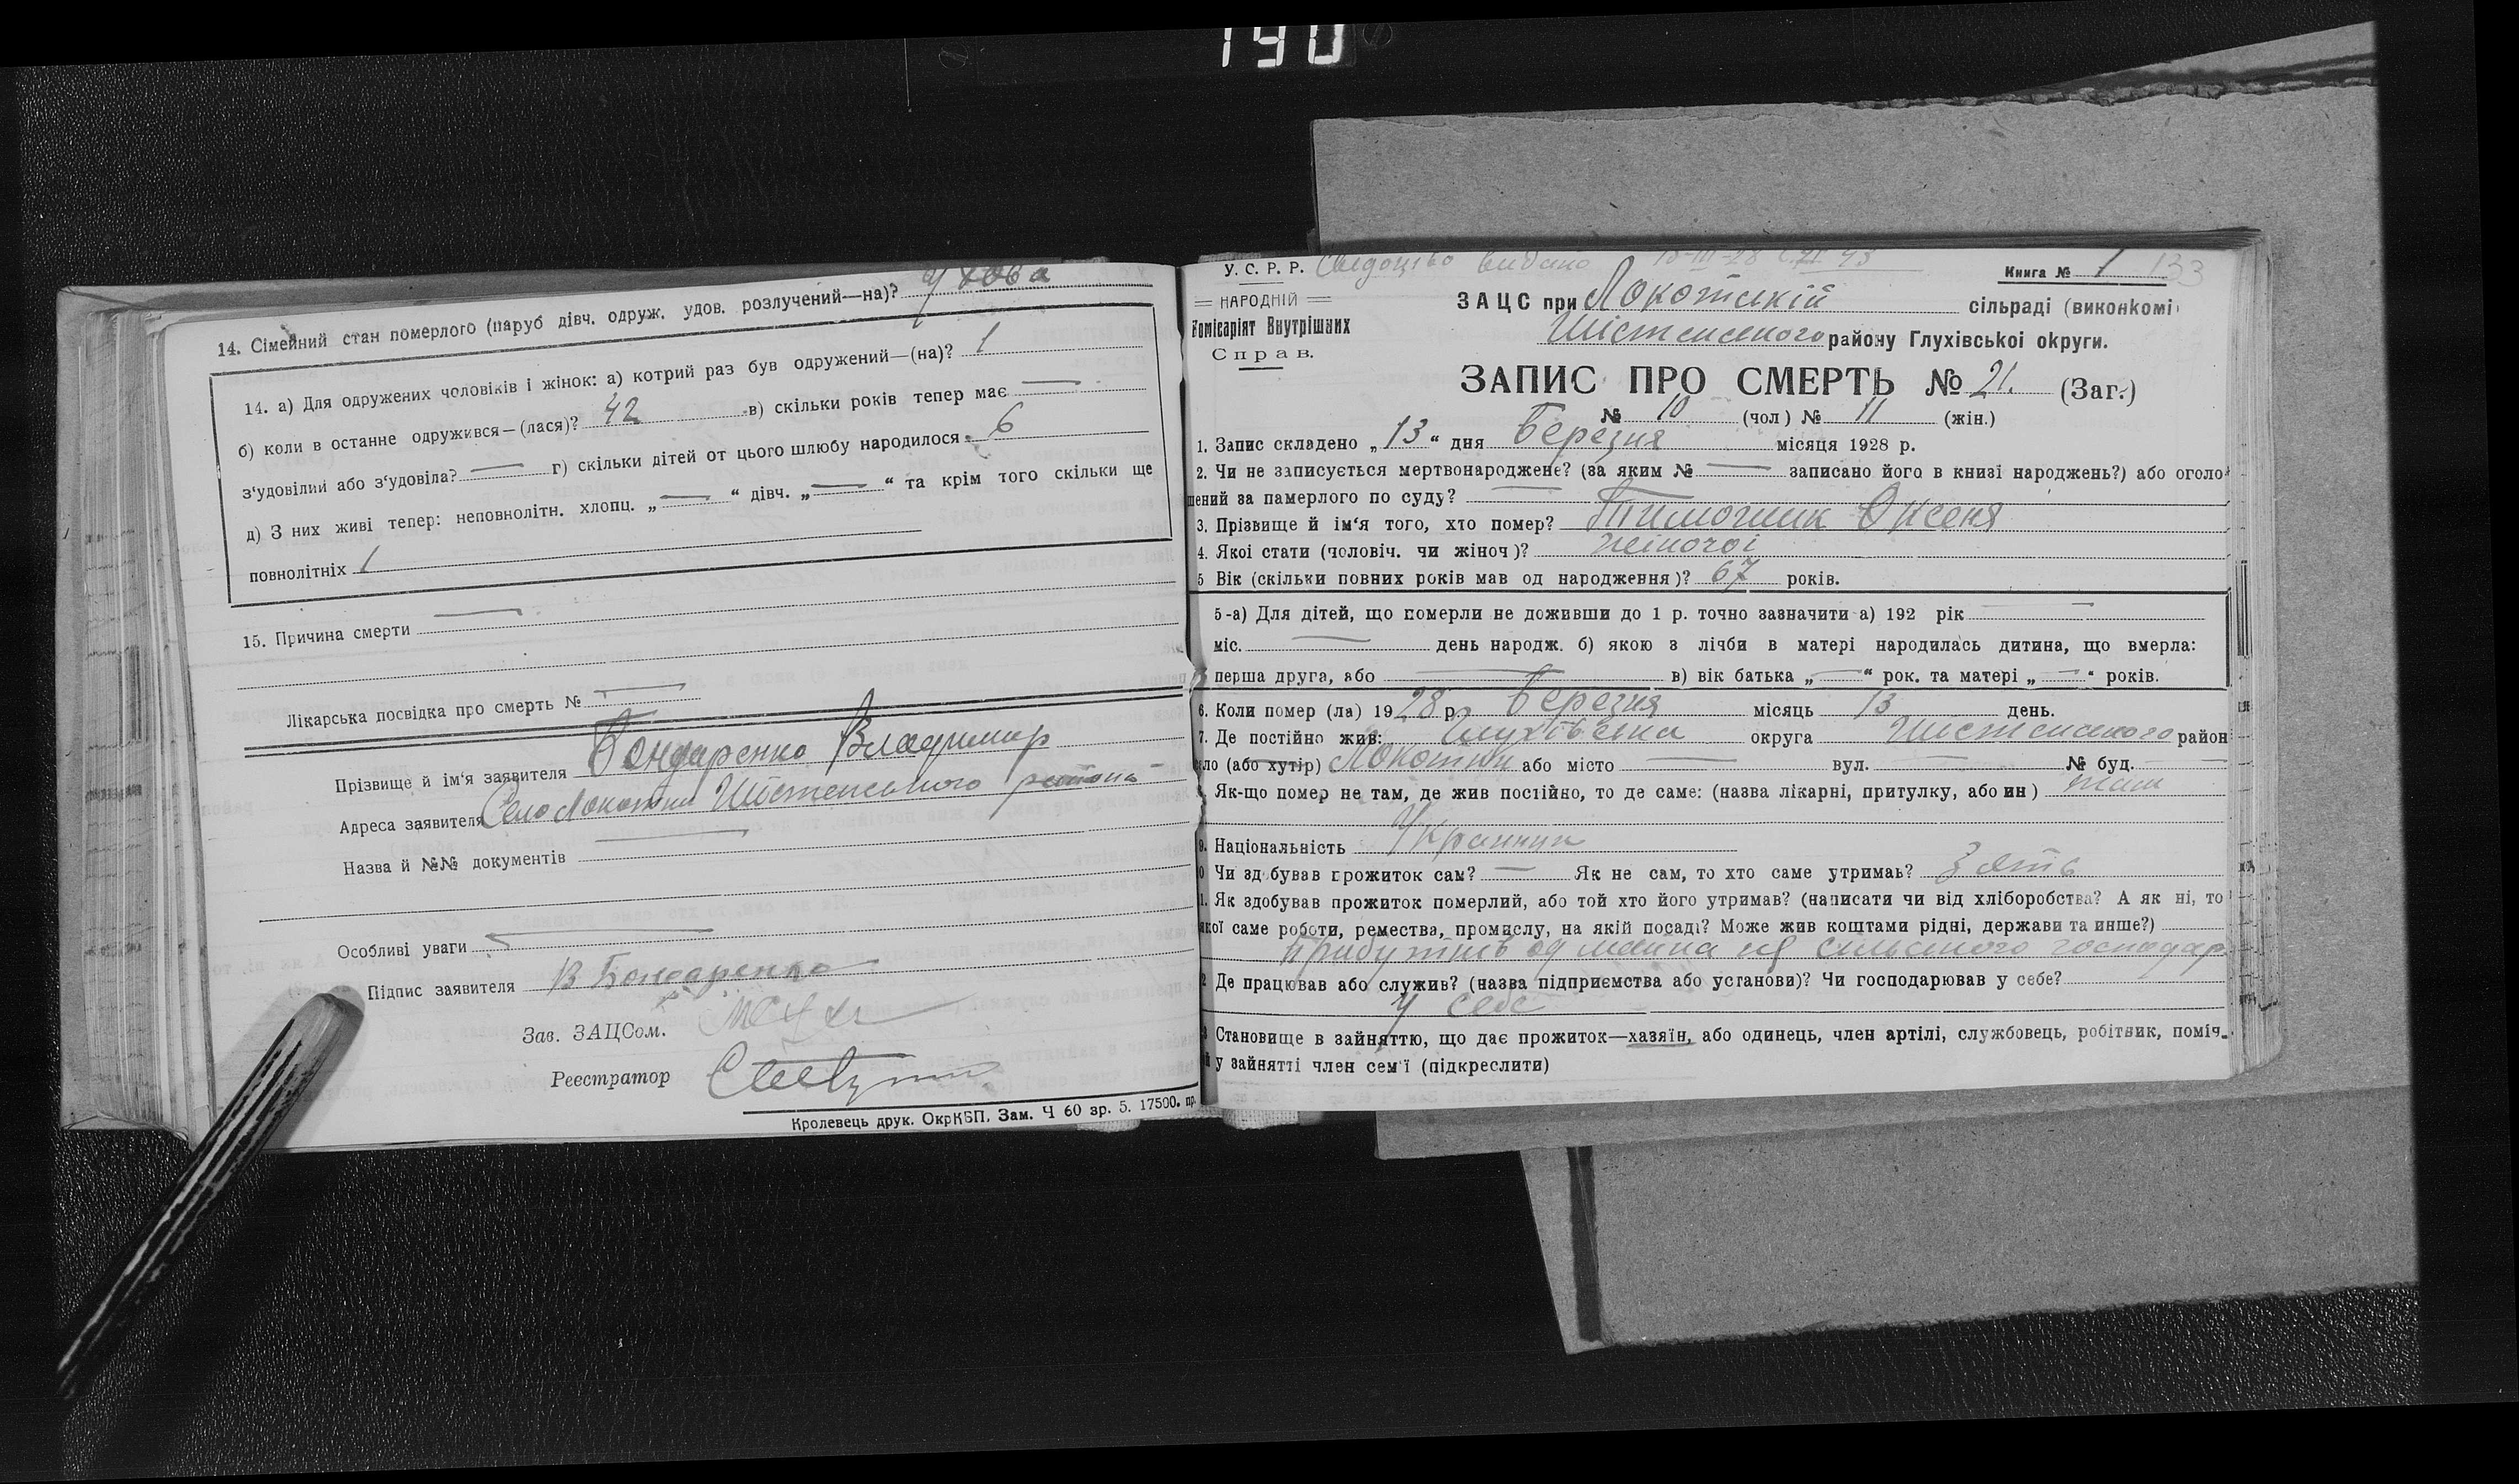 190
14. Сімейний стан померлого (паруб дівч. одруж. удов. розлучений—на)? удова
14. а) Для одружених чоловіків і жінок: а) котрий раз був одружений—(на)? 1
б) коли в останне одружився—(лася)? 42 в) скільки років тепер має —
з'удовілий або з'удовіла? — г) скільки дітей от цього шлюбу народилося 6
д) З них живі тепер: неповнолітн. хлопц. „ — “ дівч. „ — “ та крім того скільки ще
повнолітніх 1
15. Причина смерти —
Лікарська посвідка про смерть № —
Прізвище й ім'я заявителя Бондаренко Владимир
Адреса заявителя Село Локотки Шостенського району
Назва й №№ документів —
Особливі уваги —
Підпис заявителя В Бондаренко
Зав. ЗАЦСом.
Реестратор
Кролевець друк. ОкрКБП, Зам. Ч 60 зр. 5. 17500. пр.
У. С. Р. Р. Свідоцтво видано 13-III-28 43 Книга № 1 133
НАРОДНІЙ
Комісаріят Внутрішних
Справ.
ЗАЦС при Локотській сільраді (виконкомі
Шістенського району Глухівської округи.
ЗАПИС ПРО СМЕРТЬ № 21. (Заг.)
№ 10 (чол) № 11 (жін.)
1. Запис складено „13“ дня Березня місяця 1928 р.
2. Чи не записується мертвонароджене? (за яким № — записано його в книзі народжень?) або оголо
шений за памерлого по суду? —
3. Прізвище й ім'я того, хто помер? Тимошик Оксеня
4. Якої стати (чоловіч. чи жіноч)? жіночоі
5 Вік (скільки повних років мав од народження)? 67 років.
5-а) Для дітей, що померли не доживши до 1 р. точно зазначити а) 192 рік —
міс. — день народж. б) якою з лічби в матері народилась дитина, що вмерла:
перша друга, або — в) вік батька „ — “ рок. та матері „ — “ років.
6. Коли помер (ла) 1928 р. Березня місяць 13 день.
7. Де постійно жив: Глухівська округа Шістенського район
ло (або хутір) Локотки або місто — вул. — № буд. —
Як-що помер не там, де жив постійно, то де саме: (назва лікарні, притулку, або ин) там
9. Національність Украинка
0 Чи здобував прожиток сам? — Як не сам, то хто саме утримав? Зять
1. Як здобував прожиток померлий, або той хто його утримав? (написати чи від хліборобства? А як ні, то
якої саме роботи, ремества, промислу, на якій посаді? Може жив коштами рідні, держави та инше?)
Прибутків од сільського господар
2 Де працював або служив? (назва підприємства або установи)? Чи господарював у себе?
у себе
3 Становище в зайняттю, що дає прожиток—хазяїн, або одинець, член артілі, службовець, робітник, поміч-
й у зайнятті член сем'ї (підкреслити)